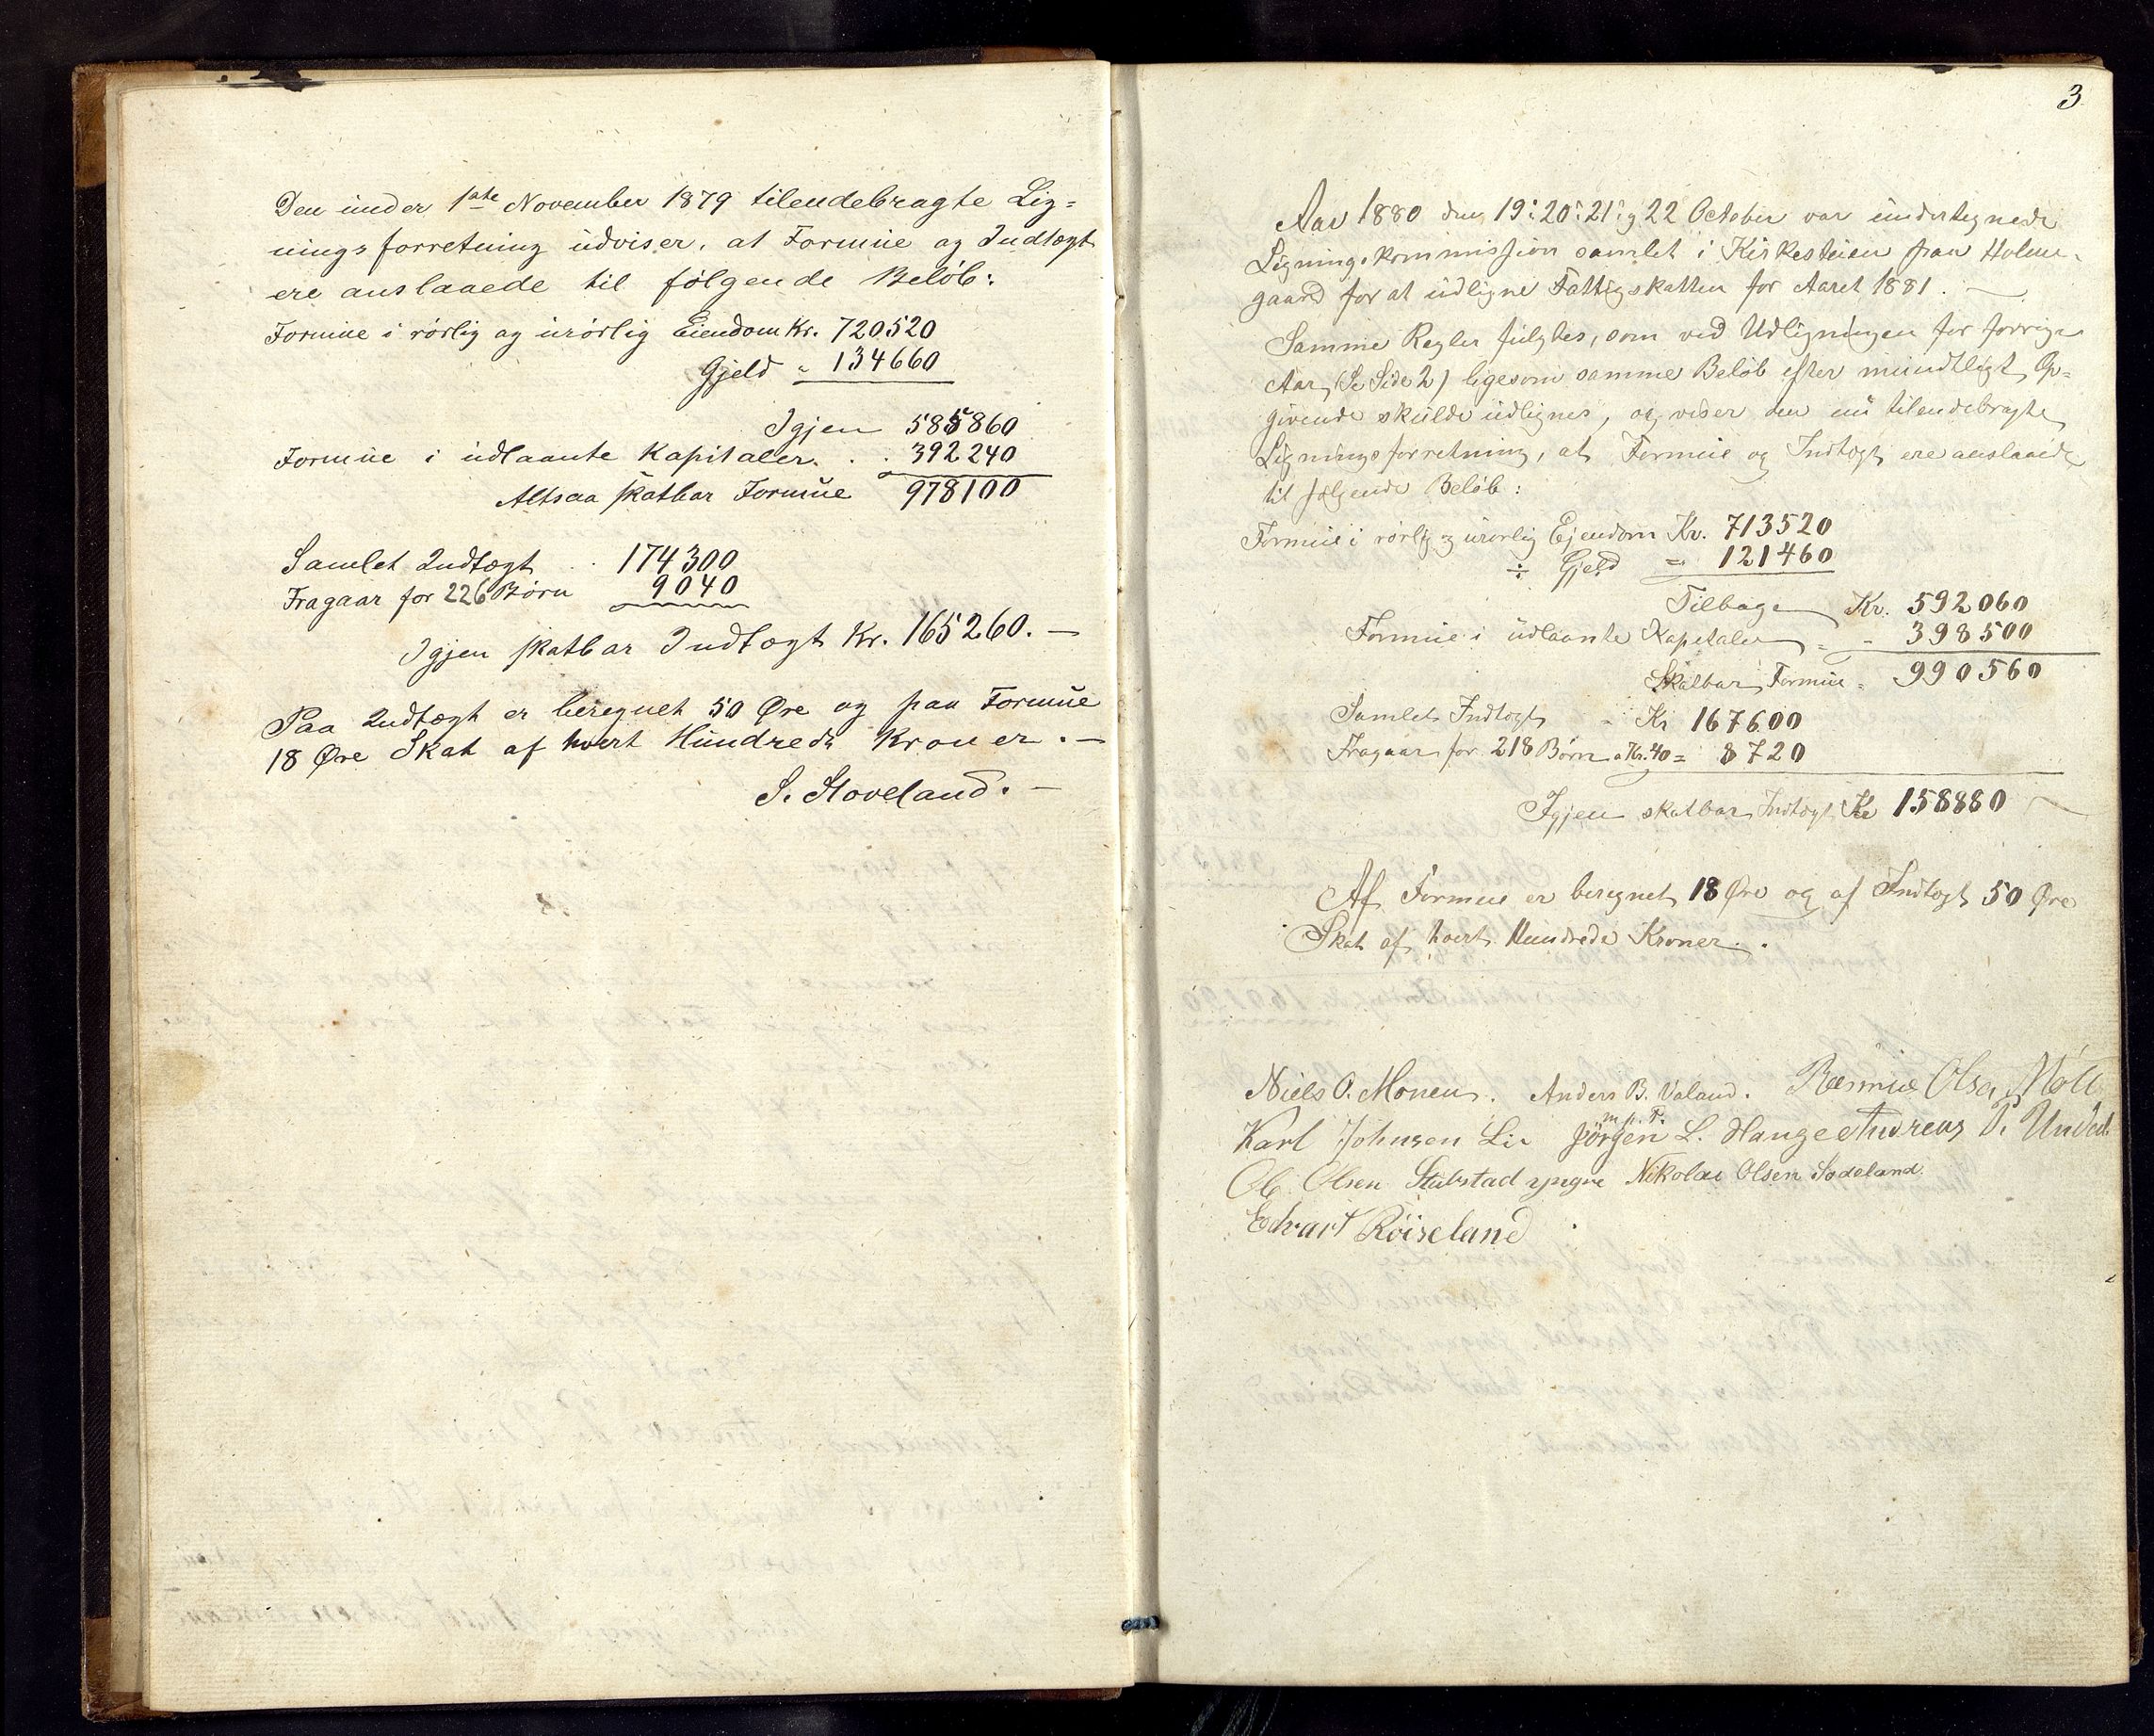 Den under 1ste November 1879 tilendebragte Lig=
ningsforretning udviser, at Formue og Indtægt
ere anslaaede til følgende Beløb:
Formue i rørlig og urørlig Eiendom Kr. 720520
Gjeld " 134660
Igjen 585860
Formue i udlaante Kapitaler . . 392240
Altsaa skatbar Formue 978100
Samlet Indtægt . . 174300
Fragaar for 226 Børn 9040
Igjen skatbar Indtægt Kr. 165260. —
Paa Indtægt er beregnet 50 Øre og paa Formue
18 Øre Skat af hvert Hundrede Kroner. —
S. Stoveland. —
3
Aar 1880 den 19: 20: 21: og 22 October var undertegnede
Ligningskommission samlet i Kirkestuen paa Holme-
gaard for at udligne Fattigskatten for Aaret 1881. —
Samme Regler fulgtes, som ved Udligningen for forrige
Aar, (Se Side 2) ligesom samme Beløb efter mundtligt Op=
givende skulde udlignes, og viser den nu tilendebragte
Ligningsforretning, at Formue og Indtægt ere anslaaede
til følgende Beløb:
Formue i rørlig og urørlig Ejendom Kr. 713520
÷ Gjeld = 121460
Tilbage Kr. 592060
Formue i udlaante Kapitaler = - 398500
Skatbar Formue = 990560
Samlet Indtægt - Kr 167600
Fragaar for 218 Børn a Kr. 40 = 8720
Igjen skatbar Indtægt Kr 158880 —
Af Formue er beregnet 18 Øre og af Indtægt 50 Øre
Skat af hvert Hundrede Kroner. .
Niels O. Monen. Anders B. Valand. Rasmus Olsen Møll
m. p. P.
Karl Johnsen Lie Jørgen L. Hauge Andreas P. Undal
Ole Olsen Stubstad yngre Nikolai Olsen Sodeland
Edvart Röiseland